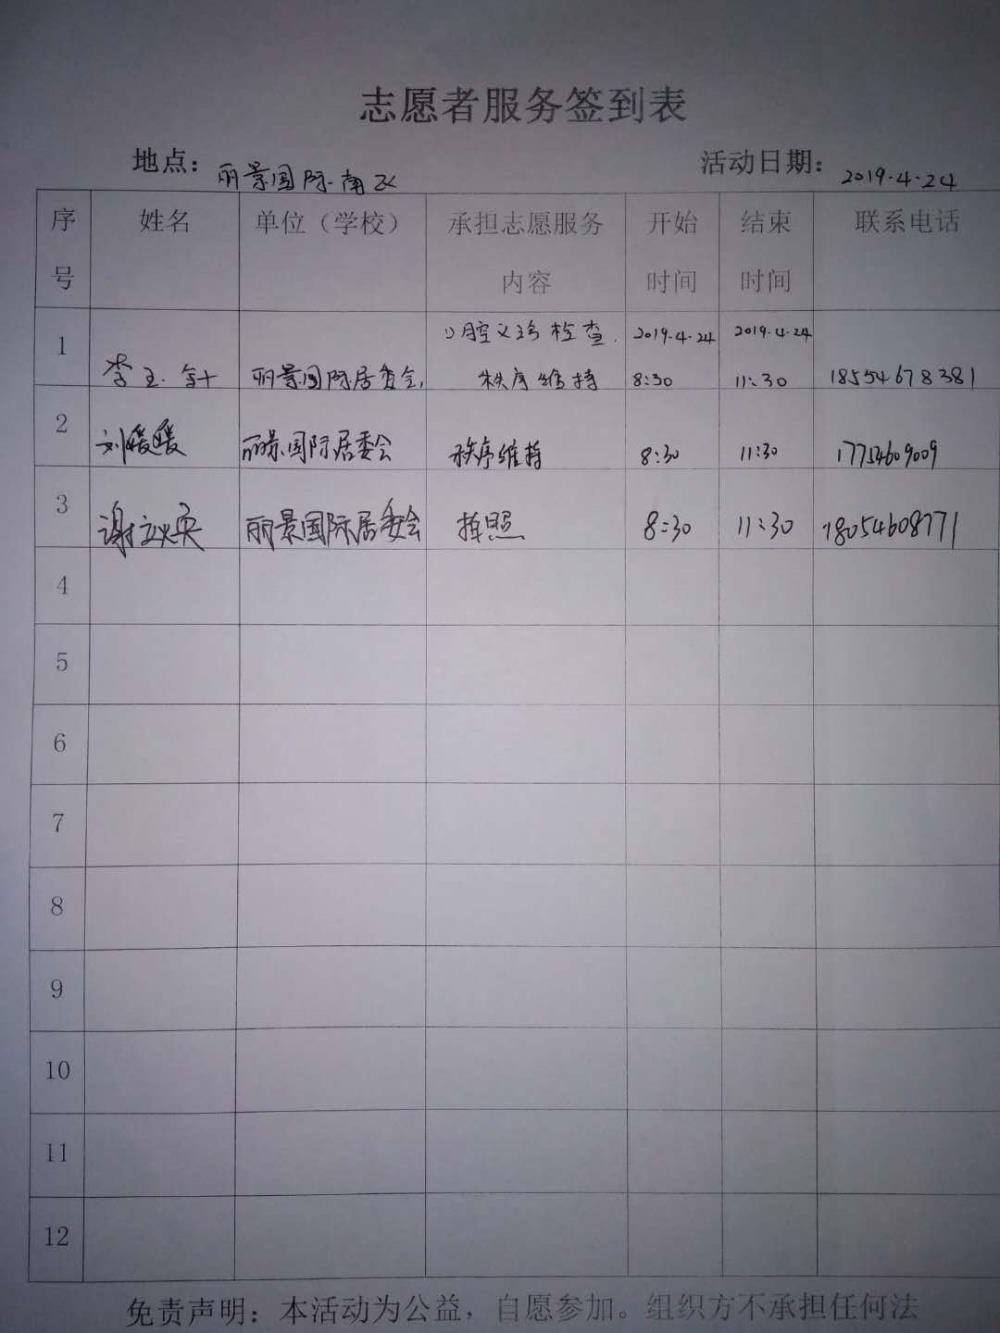 志愿者服务签到表
地点：丽景国际-南区 活动日期：2019.4.24
序号 姓名 单位（学校） 承担志愿服务内容 开始时间 结束时间 联系电话
1 李玉 丽景国际居委会 口腔义诊检查 秩序维持 2019.4.24 8:30 2019.4.24 11:30 18554678381
2 刘媛媛 丽景国际居委会 秩序维持 8:30 11:30 17754609009
3 谢 丽景国际居委会 拍照 8:30 11:30 18054608771
4
5
6
7
8
9
10
11
12
免责声明：本活动为公益，自愿参加。组织方不承担任何法